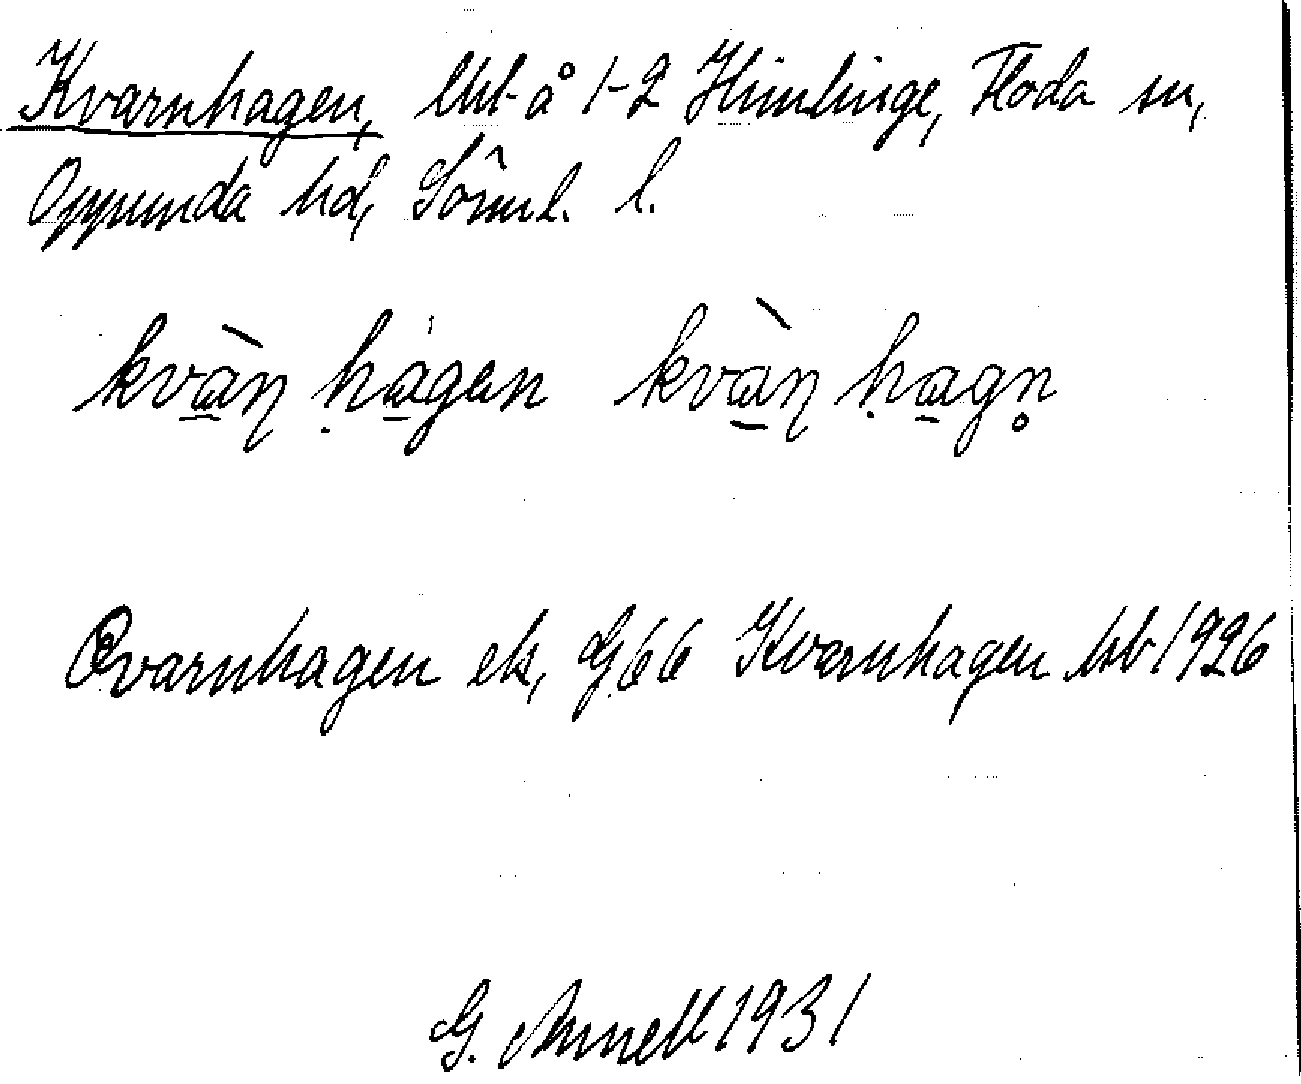 Kvarnhagen, lht å 1-2 Himlinge, Floda sn,
Oppunda hd, Sörml. l.
kvàn̠ hagen kvàn̠ hagn̥
Qvarnhagen ek, G66 Kvarnhagen hb 1926
G. Annell 1931